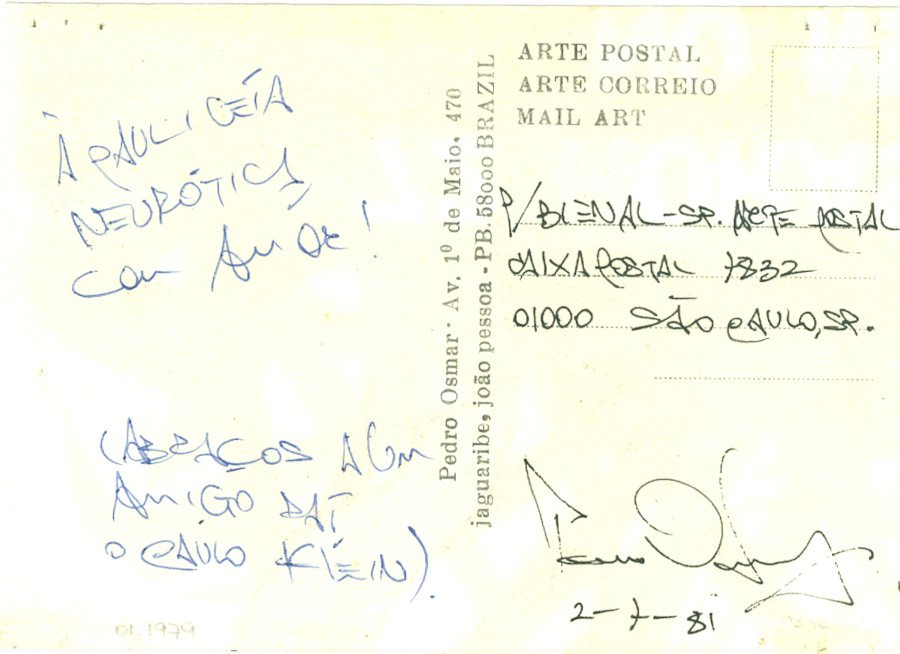 À PAULICÉIA
NEURÓTICA,
COM AMOR!
(ABRAÇOS A UM
AMIGO DAÍ
O PAULO KLEIN).
01.1979
Pedro Osmar - Av. 1º de Maio, 470
jaguaribe, joão pessoa - PB. 58000 BRAZIL
ARTE POSTAL
ARTE CORREIO
MAIL ART
P/BIENAL-SP. ARTE POSTAL
CAIXA POSTAL 7832
01000 SÃO PAULO, SP.
2-7-81